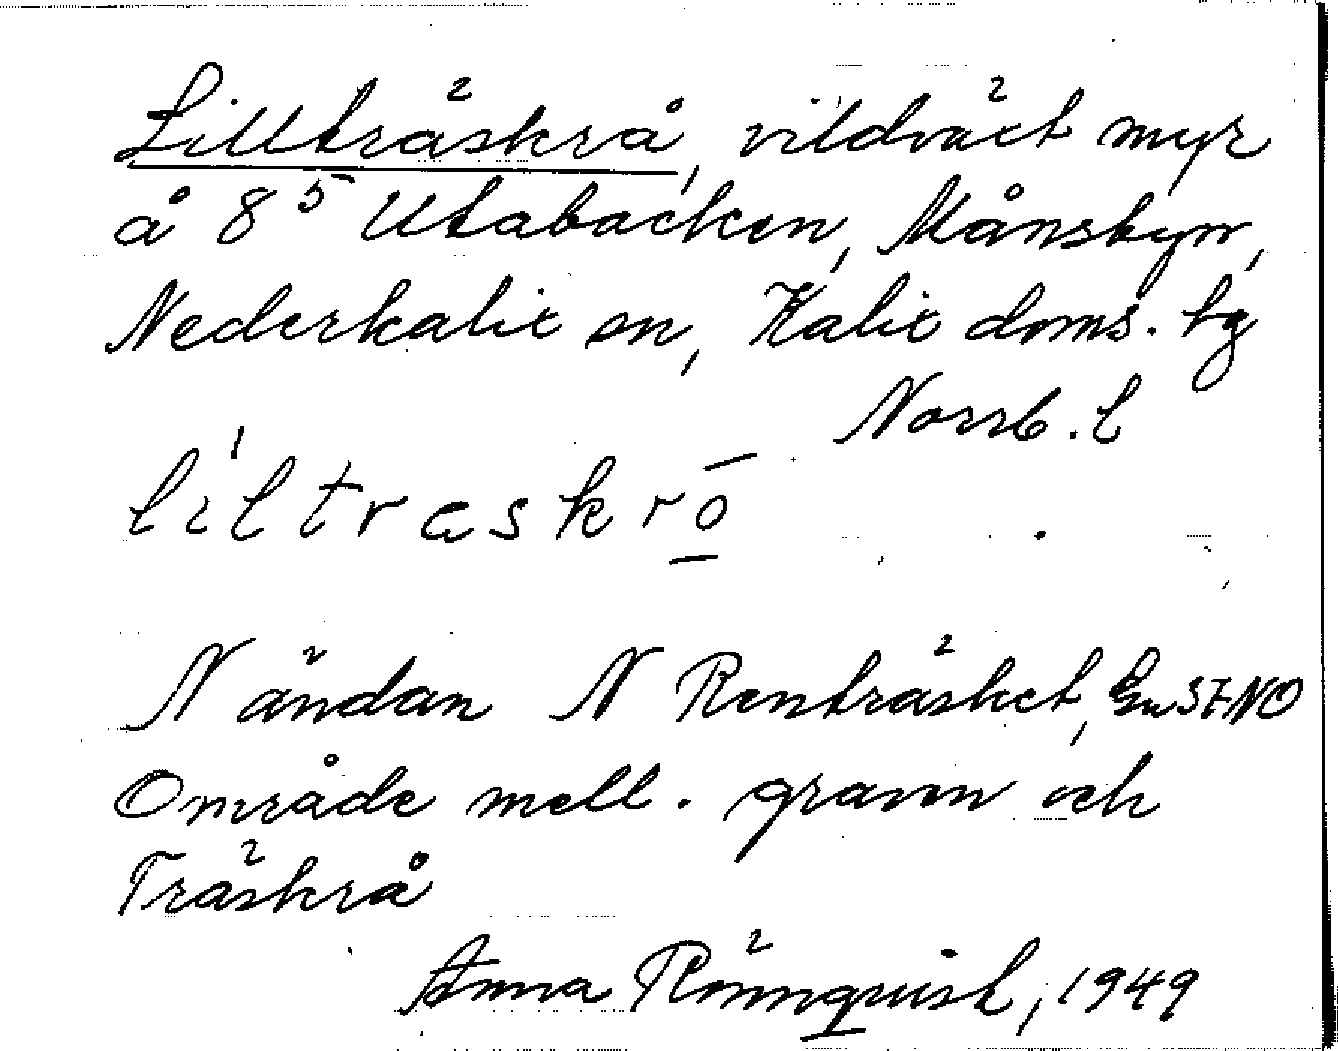 Lillträskrå, vildväct myr
å 8⁵ Utabacken, Månsbyn,
Nederkalix sn, Kalix doms. tg
Norrb. l
liltraskrō
N ändan N Renträsket, En SE NO
Område mell. graven och
Träskrå
Anna Rönnquist, 1949